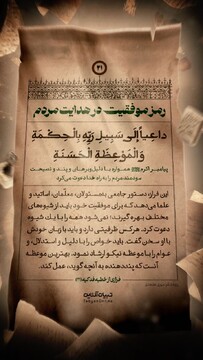 ۳۱
رمز موفقیت در هدایت مردم
داعیاً إلی سَبیلِ رَبِّهِ بِالْحِکْمَةِ
وَالْمَوْعِظَةِ الْحَسَنَةِ
پیامبر اکرم همواره با دلیل و برهان و پند و نصیحت
سودمند مردم را به راه خدا دعوت می‌کرد
این فراز، دستور جامعی به مسئولان، معلمان، اساتید و
علما می‌دهد که برای موفقیت خود باید از شیوه‌های
مختلف بهره گیرند؛ نمی‌شود همه را با یك شیوه
دعوت کرد. هرکس ظرفیتی دارد و باید با زبان خودش
با او سخن گفت. باید خواص را با دلیل و استدلال، و
عوام را با موعظه نیکو ارشاد نمود. بهترین موعظه
آنست که پنددهنده به آنچه گوید، عمل کند.
فرازی از خطبه فدکیه
تبیان آنلاین